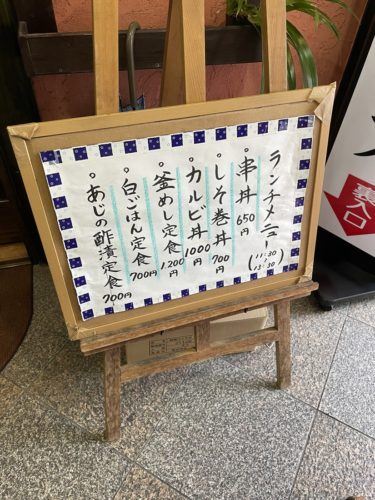 ランチメニュー
(11:30/13:30)
串丼 650円
しそ巻丼 700円
カルビ丼 1000円
釜めし定食 1,200円
白ごはん定食 700円
あじの酢漬定食 700円
裏入口